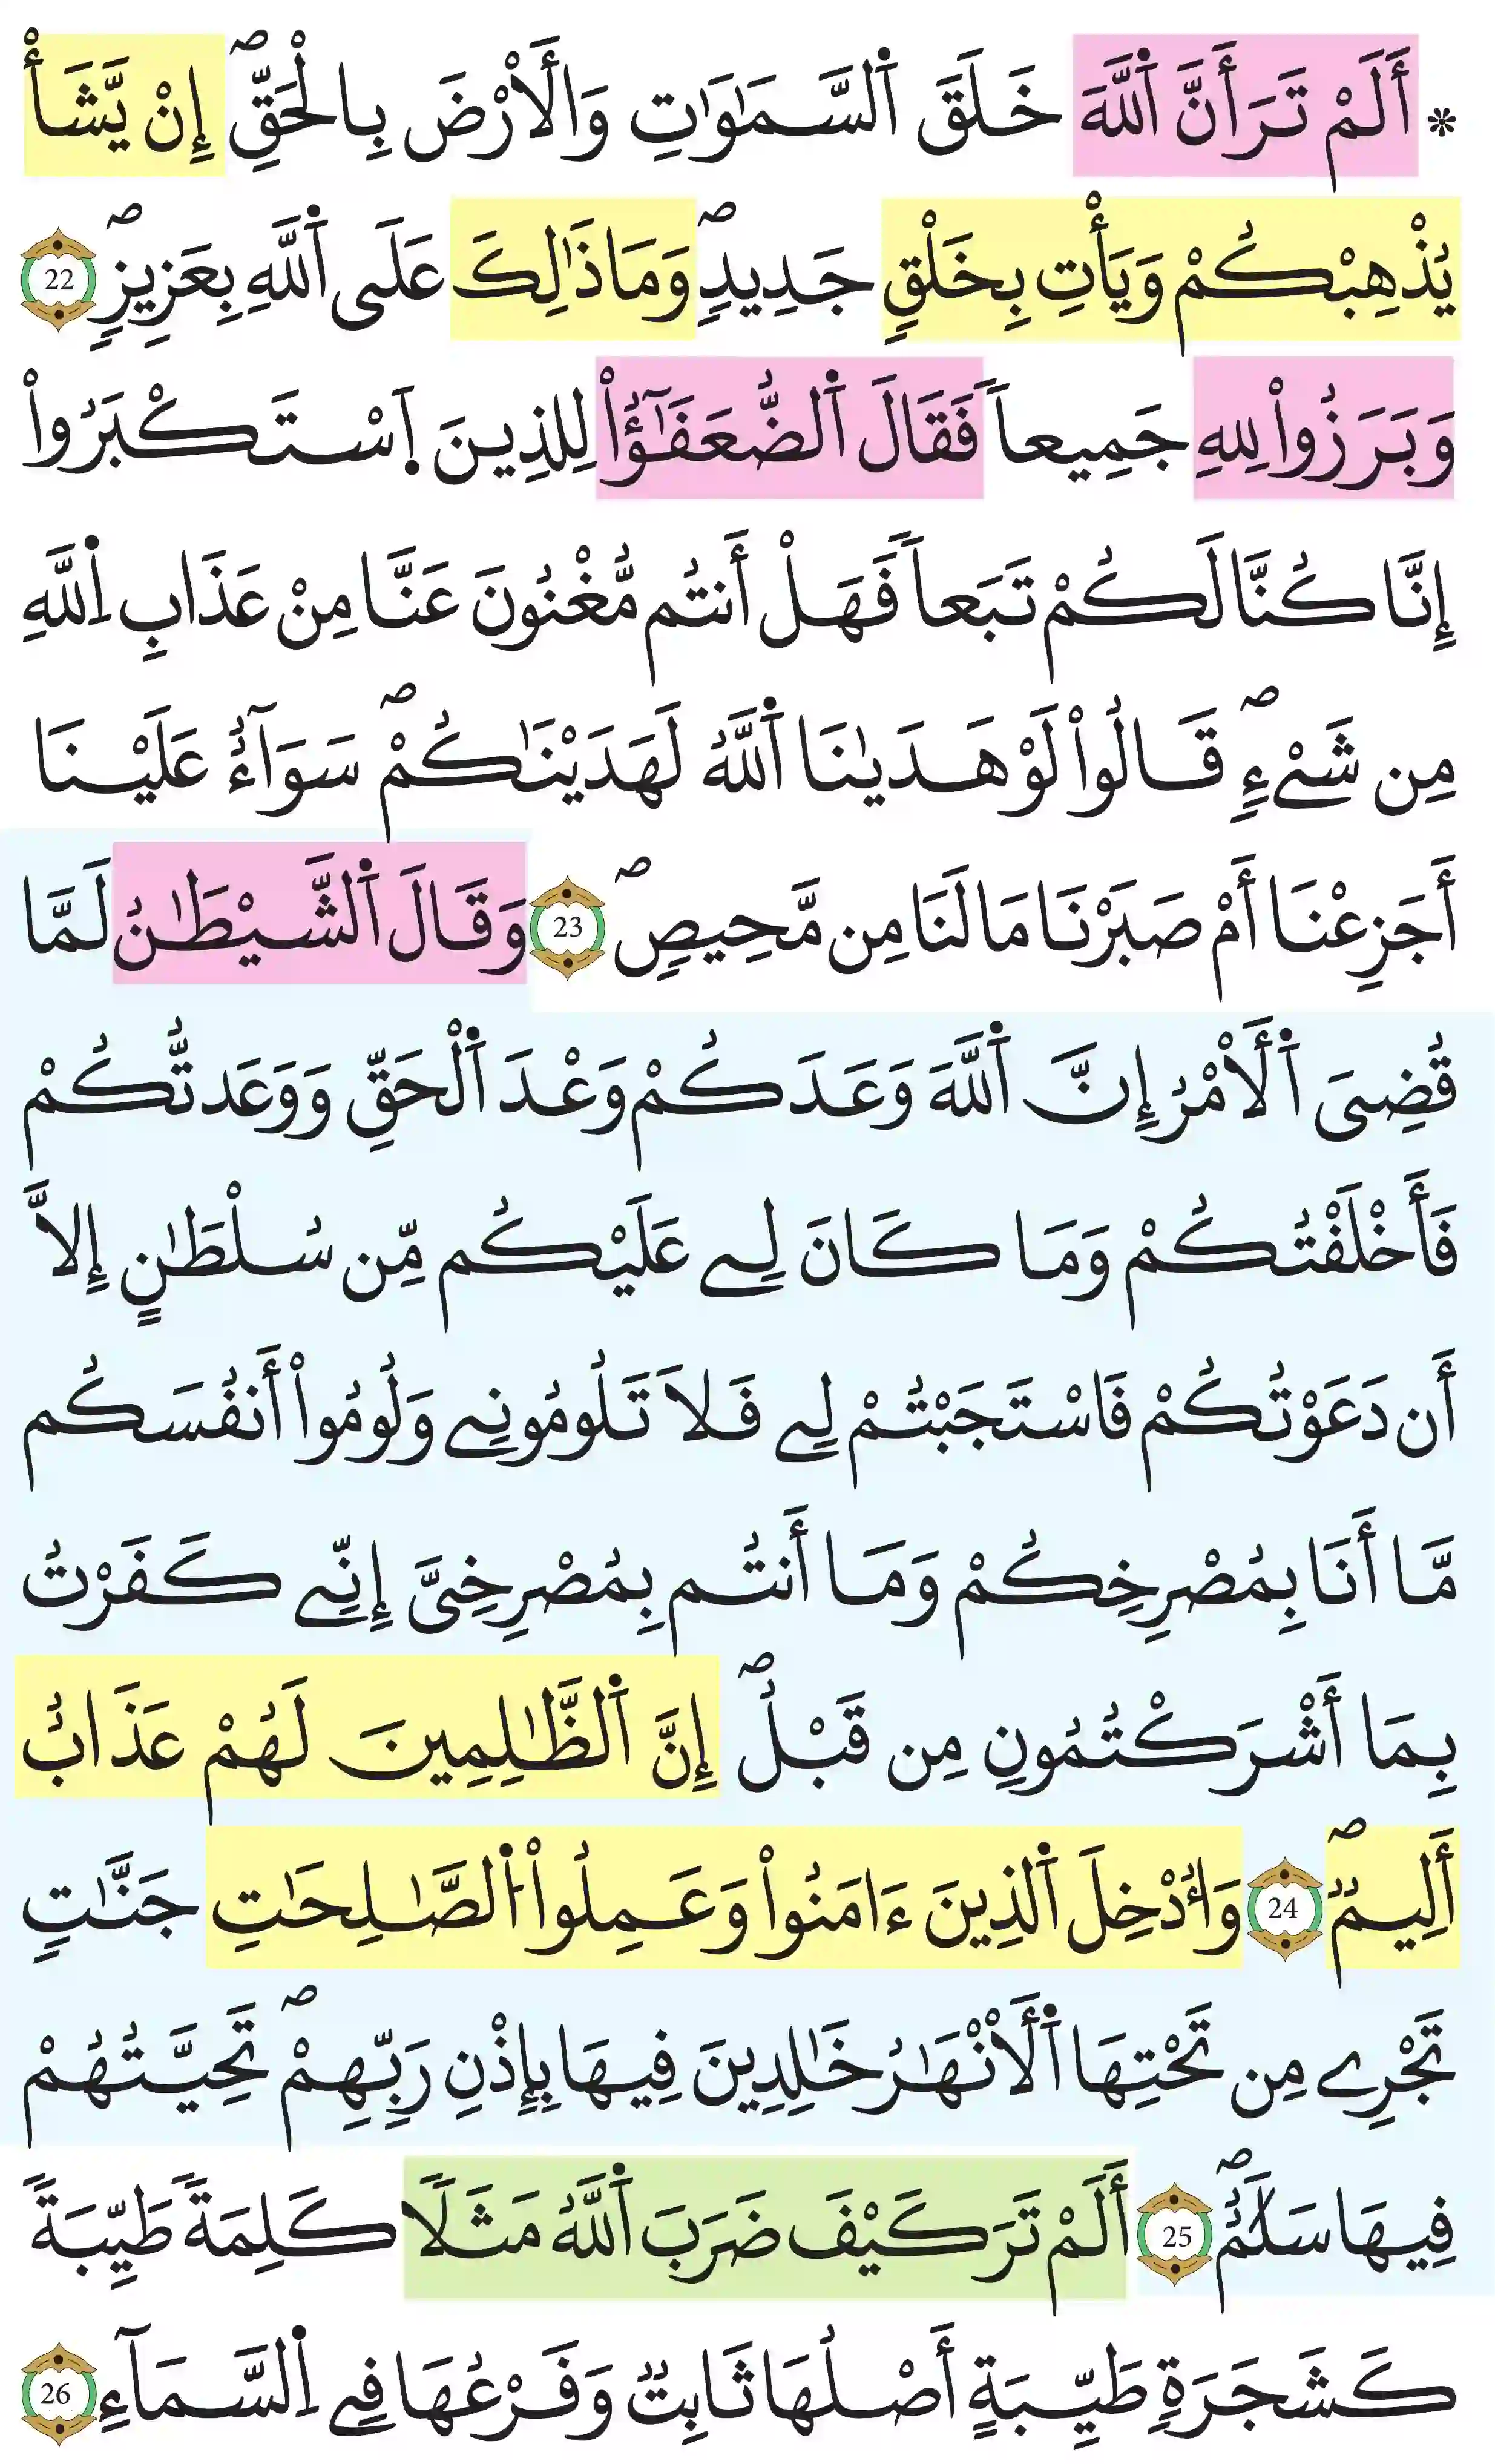 * أَلَمْ تَرَ أَنَّ اَ۬للَّهَ خَلَقَ اَ۬لسَّمَٰوَٰتِ وَالْأَرْضَ بِالْحَقِّۖ إِنْ يَّشَأْ
يُذْهِبْكُمْ وَيَأْتِ بِخَلْقٍ جَدِيدٍۖ وَمَا ذَٰلِكَ عَلَى اَ۬للَّهِ بِعَزِيزٍۖ 22
وَبَرَزُواْ لِلهِ جَمِيعاٗ فَقَالَ اَ۬لضُّعَفَٰٓؤُاْ لِلذِينَ اَ۪سْتَكْبَرُواْ
إِنَّا كُنَّا لَكُمْ تَبَعاٗ فَهَلْ أَنتُم مُّغْنُونَ عَنَّا مِنْ عَذَابِ اِ۬للَّهِ
مِن شَےْءٖۖ قَالُواْ لَوْ هَدَىٰنَا اَ۬للَّهُ لَهَدَيْنَٰكُمْۖ سَوَآءٌ عَلَيْنَا
أَجَزِعْنَا أَمْ صَبَرْنَا مَا لَنَا مِن مَّحِيصٖۖ 23 وَقَالَ اَ۬لشَّيْطَٰنُ لَمَّا
قُضِيَ اَ۬لْأَمْرُ إِنَّ اَ۬للَّهَ وَعَدَكُمْ وَعْدَ اَ۬لْحَقِّ وَوَعَدتُّكُمْ
فَأَخْلَفْتُكُمْ وَمَا كَانَ لِے عَلَيْكُم مِّن سُلْطَٰنٍ إِلَّا
أَن دَعَوْتُكُمْ فَاسْتَجَبْتُمْ لِے فَلَا تَلُومُونِے وَلُومُواْ أَنفُسَكُم
مَّا أَنَا بِمُصْرِخِكُمْ وَمَا أَنتُم بِمُصْرِخِيَّ إِنِّے كَفَرْتُ
بِمَا أَشْرَكْتُمُونِ مِن قَبْلُۖ إِنَّ اَ۬لظَّٰلِمِينَ لَهُمْ عَذَابٌ
أَلِيمٞۖ 24 وَأُدْخِلَ اَ۬لذِينَ ءَامَنُواْ وَعَمِلُواْ اُ۬لصَّٰلِحَٰتِ جَنَّٰتٖ
تَجْرِے مِن تَحْتِهَا اَ۬لْأَنْهَٰرُ خَٰلِدِينَ فِيهَا بِإِذْنِ رَبِّهِمْۖ تَحِيَّتُهُمْ
فِيهَا سَلَٰمٌۖ 25 أَلَمْ تَرَ كَيْفَ ضَرَبَ اَ۬للَّهُ مَثَلًا كَلِمَةٗ طَيِّبَةٗ
كَشَجَرَةٖ طَيِّبَةٍ أَصْلُهَا ثَابِتٞ وَفَرْعُهَا فِے اِ۬لسَّمَآءِ 26